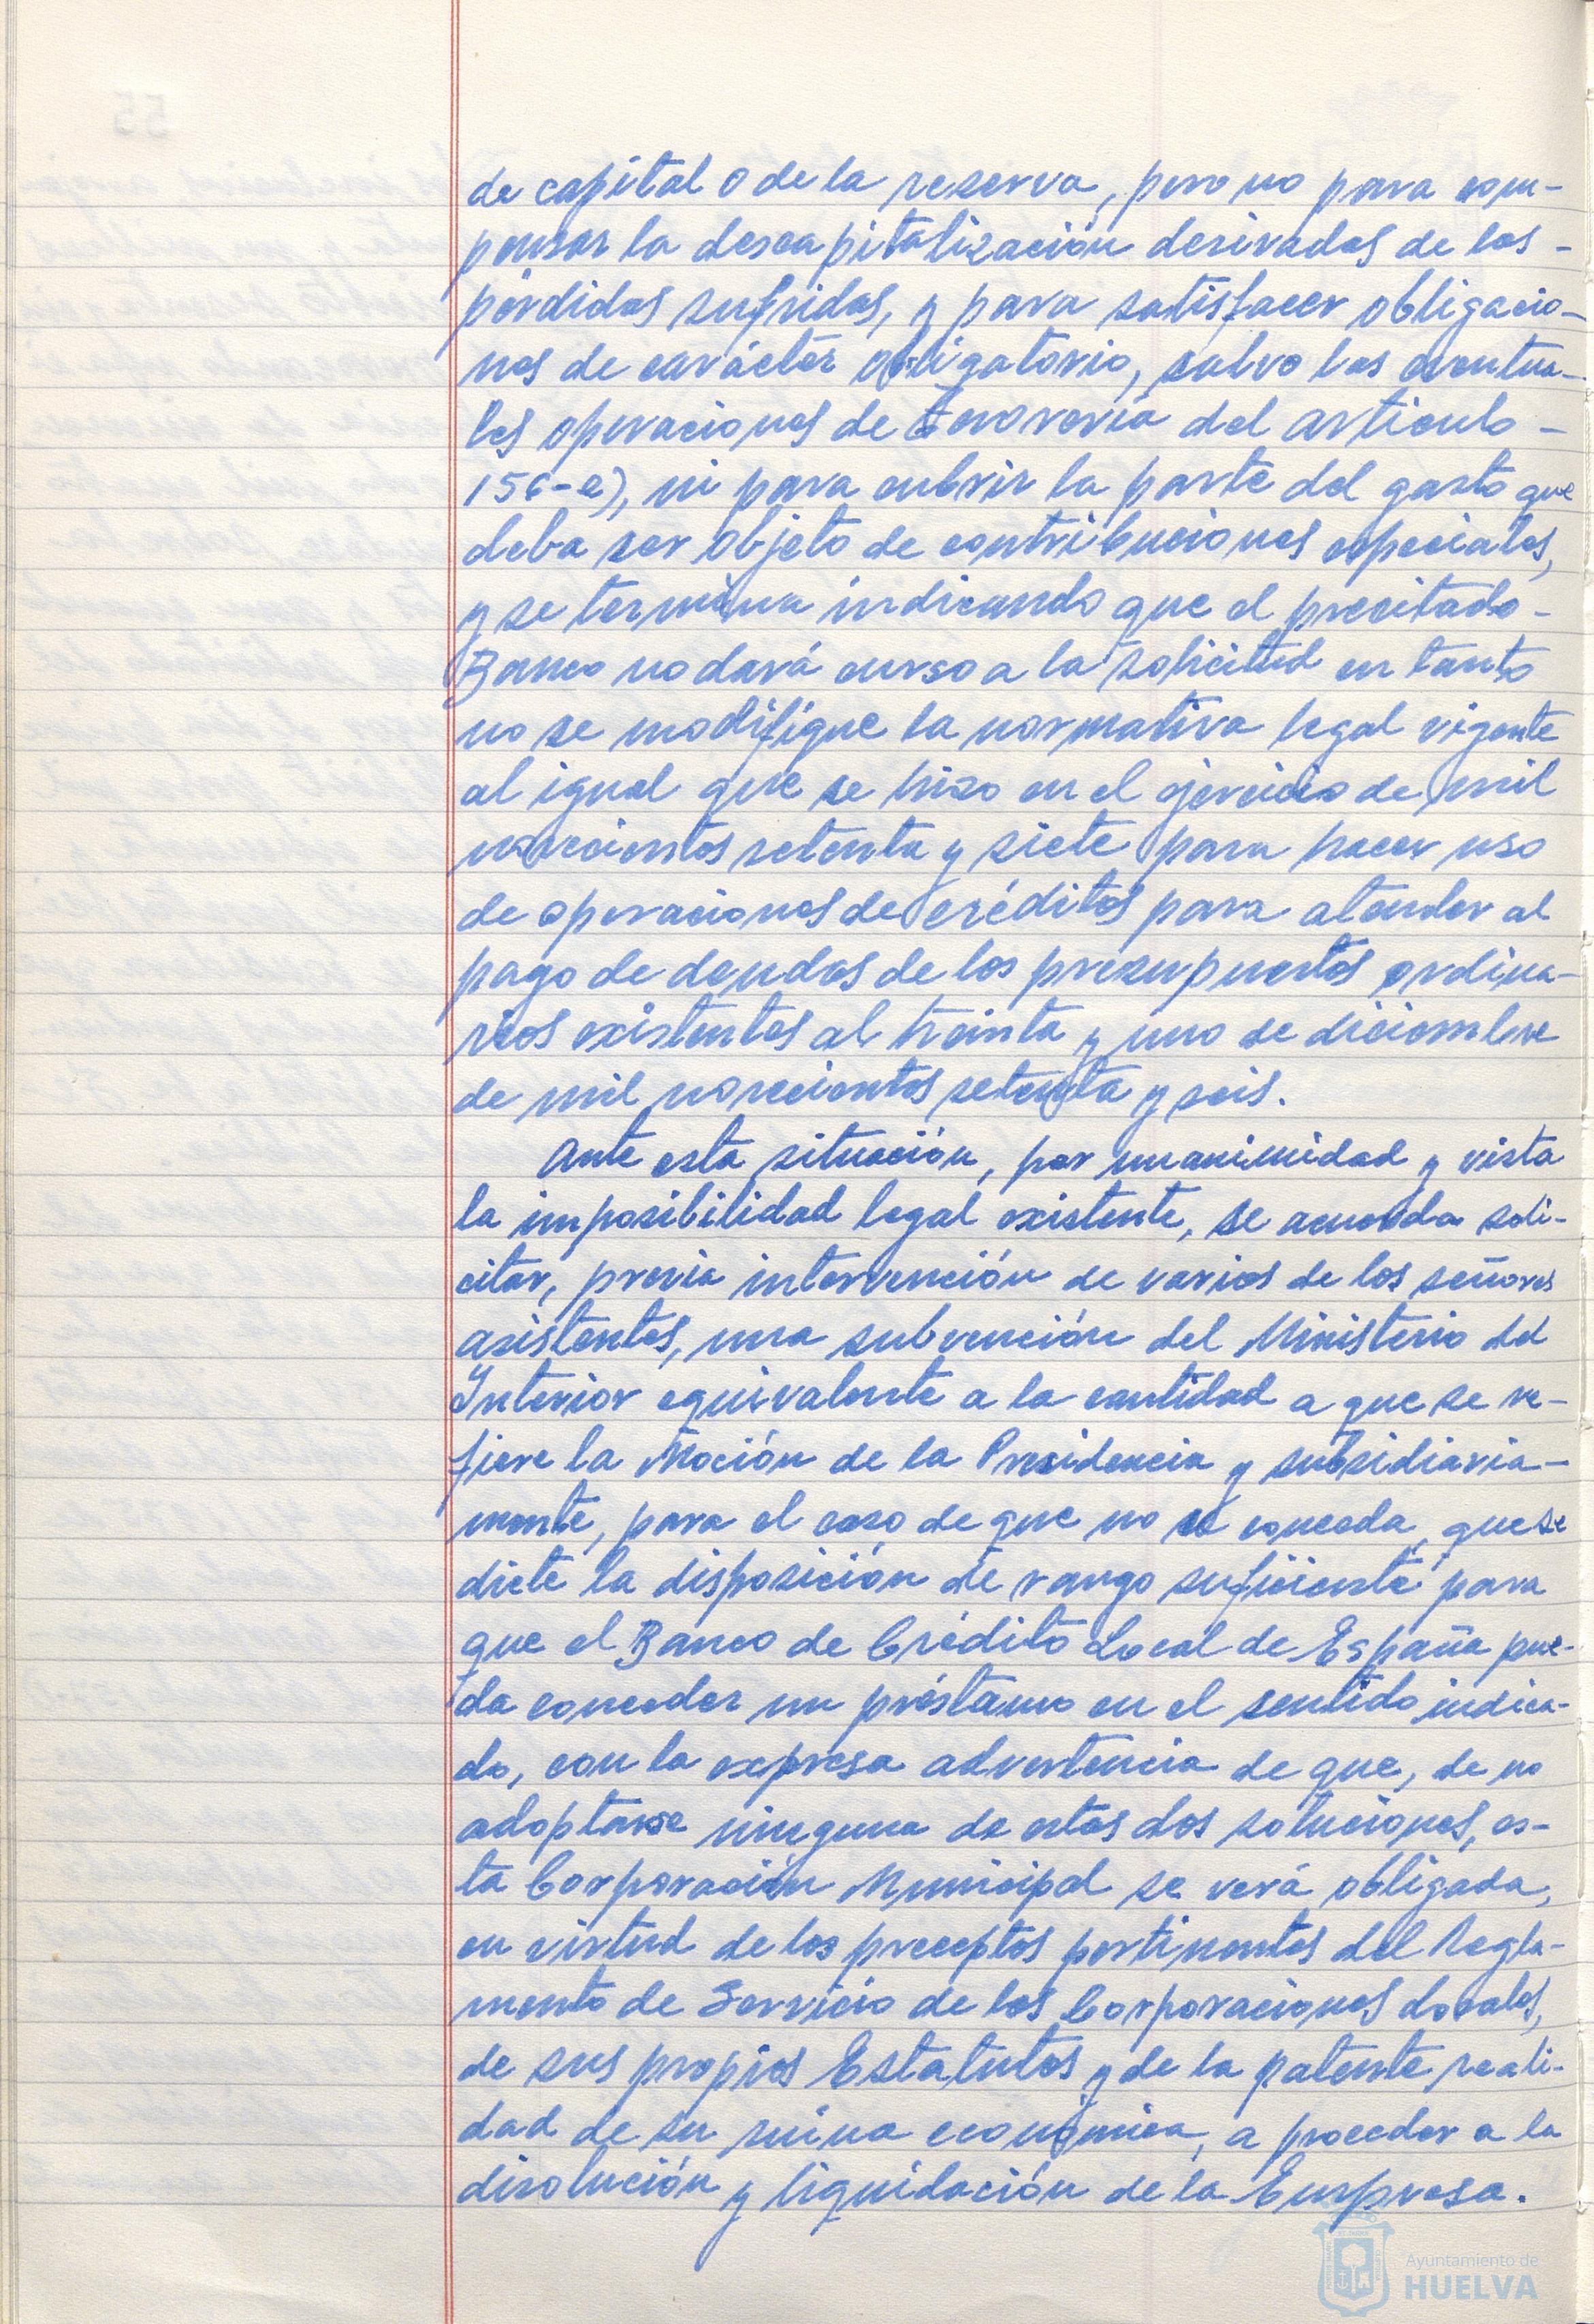 de capital o de la reserva, pero no para com-
pensar la descapitalización derivadas de las -
pérdidas sufridas, y para satisfacer obligacio-
nes de carácter obligatorio, salvo las eventua-
les operaciones de Tesorería del artículo -
156-e), ni para cubrir la parte del gasto que
deba ser objeto de contribuciones especiales,
y se termina indicando que el precitado -
Banco no dará curso a la solicitud en tanto
no se modifique la normativa legal vigente
al igual que se hizo en el ejercicio de mil
novecientos setenta y siete para hacer uso
de operaciones de créditos para atender al
pago de deudas de los presupuestos ordina-
rios existentes al treinta y uno de diciembre
de mil novecientos setenta y seis.
Ante esta situación, por unanimidad y vista
la imposibilidad legal existente, se acuerda soli-
citar, previa intervención de varios de los señores
asistentes, una subvención del Ministerio del
Interior equivalente a la cantidad a que se re-
fiere la Moción de la Presidencia y subsidiaria-
mente, para el caso de que no se conceda, que se
dicte la disposición de rango suficiente para
que el Banco de Crédito Local de España pue-
da conceder un préstamo en el sentido indica-
do, con la expresa advertencia de que, de no
adoptarse ninguna de estas dos soluciones, es-
ta Corporación Municipal se verá obligada,
en virtud de los preceptos pertinentes del Regla-
mento de Servicio de las Corporaciones Locales,
de sus propios Estatutos y de la patente reali-
dad de su ruina económica, a proceder a la
disolución y liquidación de la Empresa.
Ayuntamiento de
HUELVA